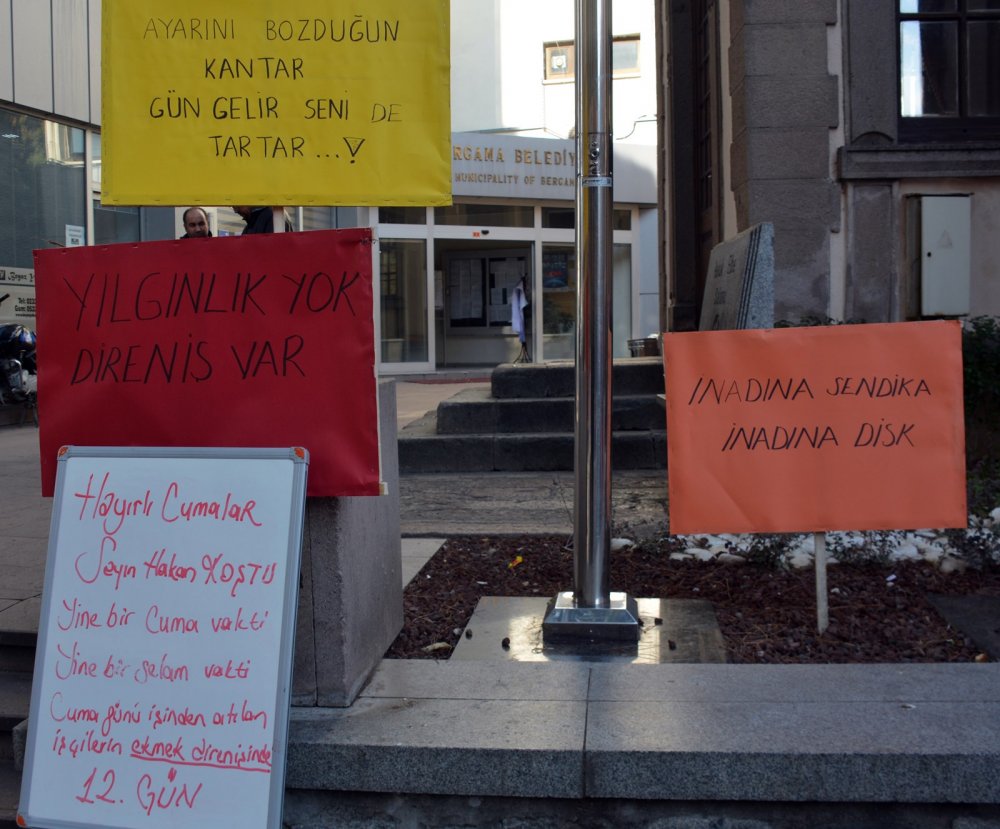 AYARINI BOZDUĞUN
KANTAR
GÜN GELİR SENİ DE
TARTAR...!
RGAMA BELEDİY
MUNICIPALITY OF BERGAM
YILGINLIK YOK
DİRENİŞ VAR
İNADINA SENDİKA
İNADINA DİSK
Hayırlı Cumalar
Sayın Hakan KOŞTU
Yine bir Cuma vakti
Yine bir selam vakti
Cuma günü işinden atılan
işçilerin ekmek direnişinde
12. GÜN